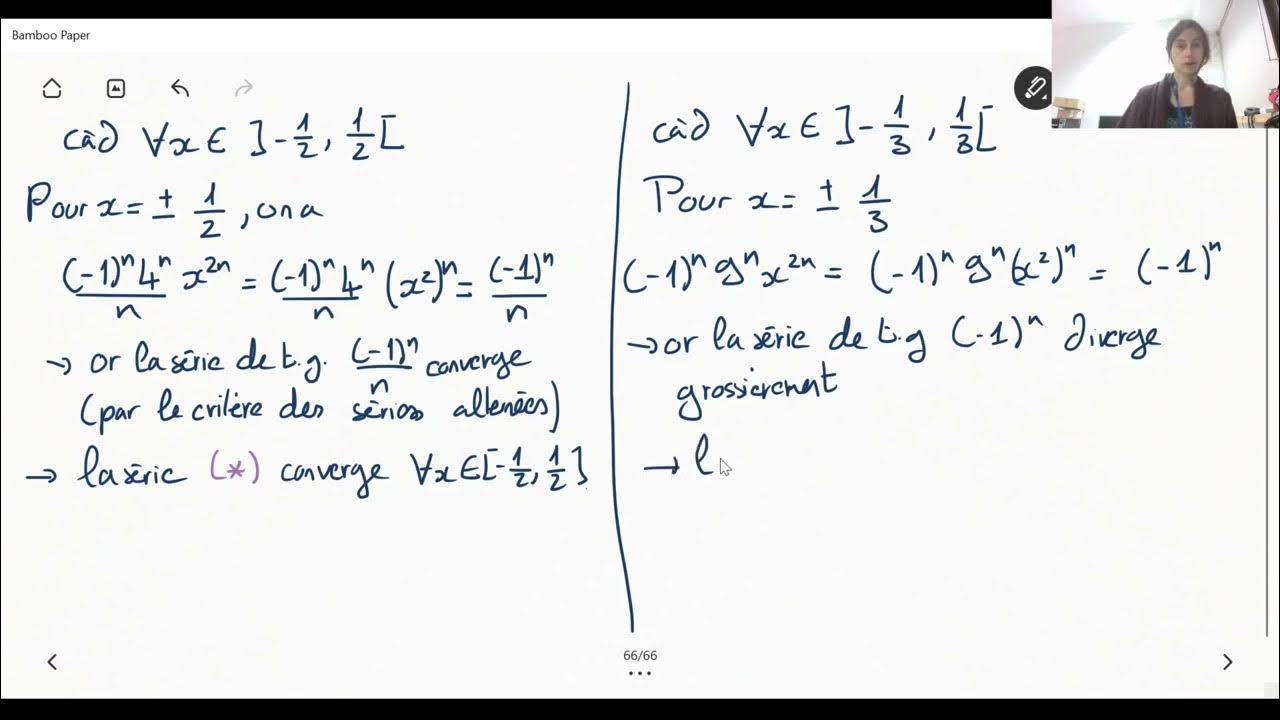 Bamboo Paper
càd ∀x ∈ ]-1/2, 1/2[
Pour x = ± 1/2, on a
(-1)ⁿ4ⁿ/n x²ⁿ = (-1)ⁿ4ⁿ/n (x²)ⁿ = (-1)ⁿ/n
→ or la série de t.g. (-1)ⁿ/n converge
(par le critère des séries alternées)
→ la série (*) converge ∀x∈[-1/2, 1/2]
càd ∀x ∈ ]-1/3, 1/3[
Pour x = ± 1/3
(-1)ⁿ 9ⁿ x²ⁿ = (-1)ⁿ 9ⁿ (x²)ⁿ = (-1)ⁿ
→ or la série de t.g (-1)ⁿ diverge
grossièrement
→ l
66/66